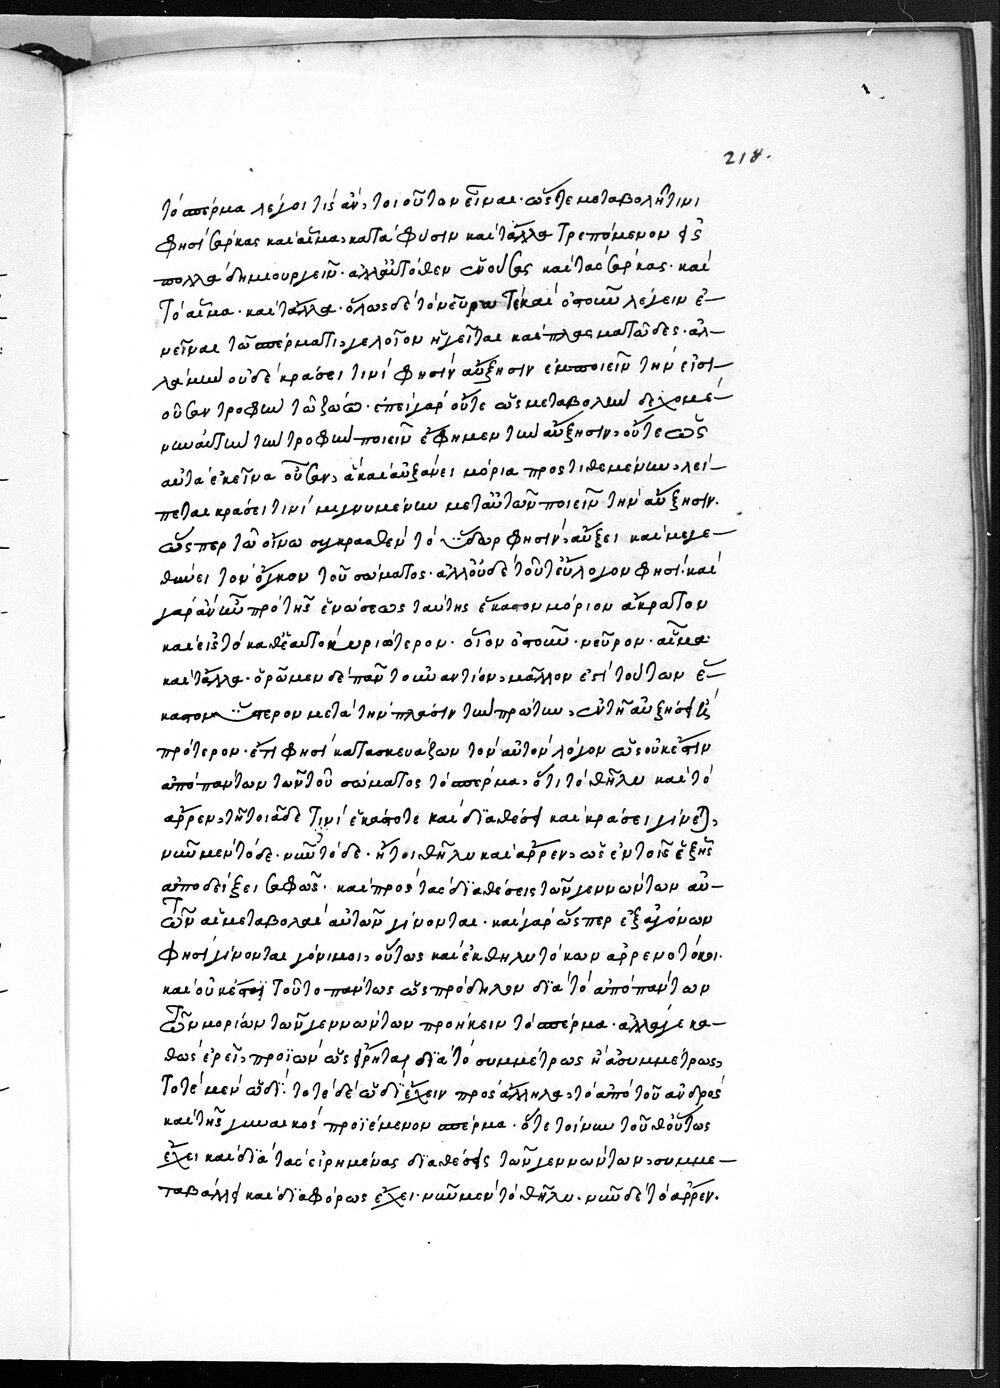 218.
τὸ σπέρμα λέγοι τίς ἂν, τοιοῦτον εἶναι· ὥστε μεταβολῇ τινι
φησὶ σάρκας καὶ αἷμα, κατὰ φύσιν καὶ τἄλλα τρεπόμενον εἰς
πολλὰ δημιουργεῖν· ἀλλ' αὐτόθεν οὔσας καὶ τὰς σάρκας· καὶ
τὸ αἷμα· καὶ τἄλλα· ὅλως δὲ τὸ νεῦρα τὲ καὶ ὀστοῦν λέγειν ἐ-
νεῖναι τῷ σπέρματι, γελοῖον ἡγεῖται καὶ πλασματῶδες· ἀλ-
λὰ μὴν οὐδὲ κράσει τινὶ φησὶν αὔξησιν ἐμποιεῖν τὴν εἰσι-
οῦσαν τροφὴν τῷ ζώῳ· ἐπεὶ γὰρ οὔτε ὡς μεταβολὴν δεχομέ-
νην αὐτὴν τὴν τροφὴν ποιεῖν ἔφημεν τὴν αὔξησιν, οὔτε ὡς
αὐτὰ ἐκεῖνα οὖσαν, ἃ καὶ αὐξάνει μόρια προστιθεμένων, λεί-
πεται κράσει τινὶ μιγνυμένων μετ' αὐτῶν ποιεῖν τὴν αὔξησιν.
ὥσπερ τῷ οἴνῳ συγκραθὲν τὸ ὕδωρ φησὶν, αὔξει καὶ μεγε-
θύνει τὸν ὄγκον τοῦ σώματος· ἀλλ' οὐδὲ τοῦτ' εὔλογον φησὶ· καὶ
γὰρ ἂν ἦν πρὸ τῆς ἑνώσεως ταύτης ἕκαστον μόριον ἄκρατον
καὶ εἰς τὸ καθ' ἑαυτὸ κυριώτερον· οἷον ὀστοῦν· νεῦρον· αἷμα·
καὶ τἄλλα· ὁρῶμεν δὲ πᾶν τοὐναντίον, μᾶλλον ἐπὶ τούτων ἕ-
καστον ὕστερον μετὰ τὴν πλάσιν τὴν πρώτην, ἐν τῇ αὐξήσει ἢ
πρότερον· ἔτι φησὶ κατασκευάζων τὸν αὐτὸν λόγον ὡς οὐκ ἔστιν
ἀπὸ πάντων τῶν τοῦ σώματος τὸ σπέρμα, ὅτι τὸ θῆλυ καὶ τὸ
ἄρρεν, τῇ τοιᾷδε τινὶ ἑκάστοτε καὶ διαθέσει καὶ κράσει γίνεται,
νῦν μὲν τόδε· νῦν τόδε· ἤτοι θῆλυ καὶ ἄρρεν, ὡς ἐν τοῖς ἑξῆς
ἀποδείξει σαφῶς· καὶ πρὸς τὰς διαθέσεις τῶν γεννώντων αὐ-
τῶν αἱ μεταβολαὶ αὐτῶν γίνονται· καὶ γὰρ ὥσπερ ἐξ ἀγόνων
φησὶ γίνονται γόνιμοι, οὕτως καὶ ἐκ θηλυτόκων ἀρρενοτόκοι·
καὶ οὐκ ἔστι τοῦτο πάντως ὡς πρόδηλον διὰ τὸ ἀπὸ πάντων
τῶν μορίων τῶν γεννώντων προήκειν τὸ σπέρμα· ἀλλά γε κα-
θὼς ἐρεῖ, προϊὼν ὡς εἴρηται, διὰ τὸ συμμέτρως ἢ ἀσυμμέτρως,
τοτὲ μὲν ὡδί· τοτὲ δὲ ὡδὶ ἔχειν πρὸς ἄλληλα, τὸ ἀπὸ τοῦ ἀνδρὸς
καὶ τῆς γυναικὸς προϊέμενον σπέρμα· ὅτε τοίνυν τοῦθ' οὕτως
ἔχει καὶ διὰ τὰς εἰρημένας διαθέσεις τῶν γεννώντων, συμμε-
ταβάλλει καὶ διαφόρως ἔχει· νῦν μὲν τὸ θῆλυ· νῦν δὲ τὸ ἄρρεν.